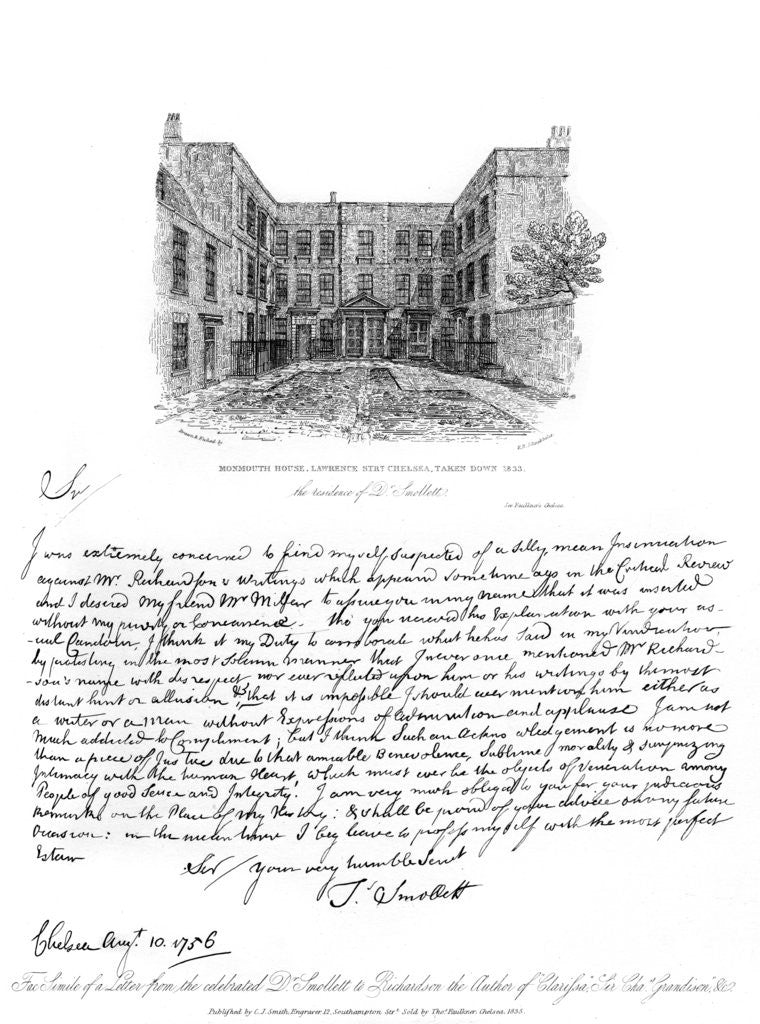 Drawn & Etched by
MONMOUTH HOUSE, LAWRENCE STRT. CHELSEA, TAKEN DOWN 1833.
the residence of Dr. Smollett.
See Faulkner's Chelsea.
Sr/
I was extremely concerned to find myself suspected of a silly mean Insinuation
against Mr. Richardson's Writings which appeard sometime ago in the Critical Review
and I desired my friend Mr Millar to assure you in my name that it was inserted
without my privity or Concurrence. Tho' you received his Explanation with your us-
-ual Candour, I think it my Duty to corroborate what he has Said in my Vindication,
by protesting in the most Solemn manner that I never once mentioned Mr Richard-
-son's name with disrespect, nor ever reflected upon him or his writings by the most
distant hint or allusion & that it is impossible I should ever mention him either as
a writer or a man without Expressions of admiration and applause I am not
much addicted to Compliment; but I think Such an Acknowledgement is no more
than a piece of Justice due to that amiable Benevolence, Sublime morality & surprizing
Intimacy with the human Heart, which must ever be the objects of Veneration among
People of good Sense and Integrity. I am very much obliged to you for your judicious
Remarks on the Place of my History: & shall be proud of your advice on any future
Occasion: in the mean time I beg leave to profess myself with the most perfect
Esteem
Sir/ Your very humble Servt.
Ts. Smollett
Chelsea Augt. 10. 1756
Fac Simile of a Letter from the celebrated Dr. Smollett to Richardson the Author of "Clarissa," "Sir Chas. Grandison," &c.
Published by C. J. Smith, Engraver 12, Southampton Strt. Sold by Thos. Faulkner, Chelsea, 1835.